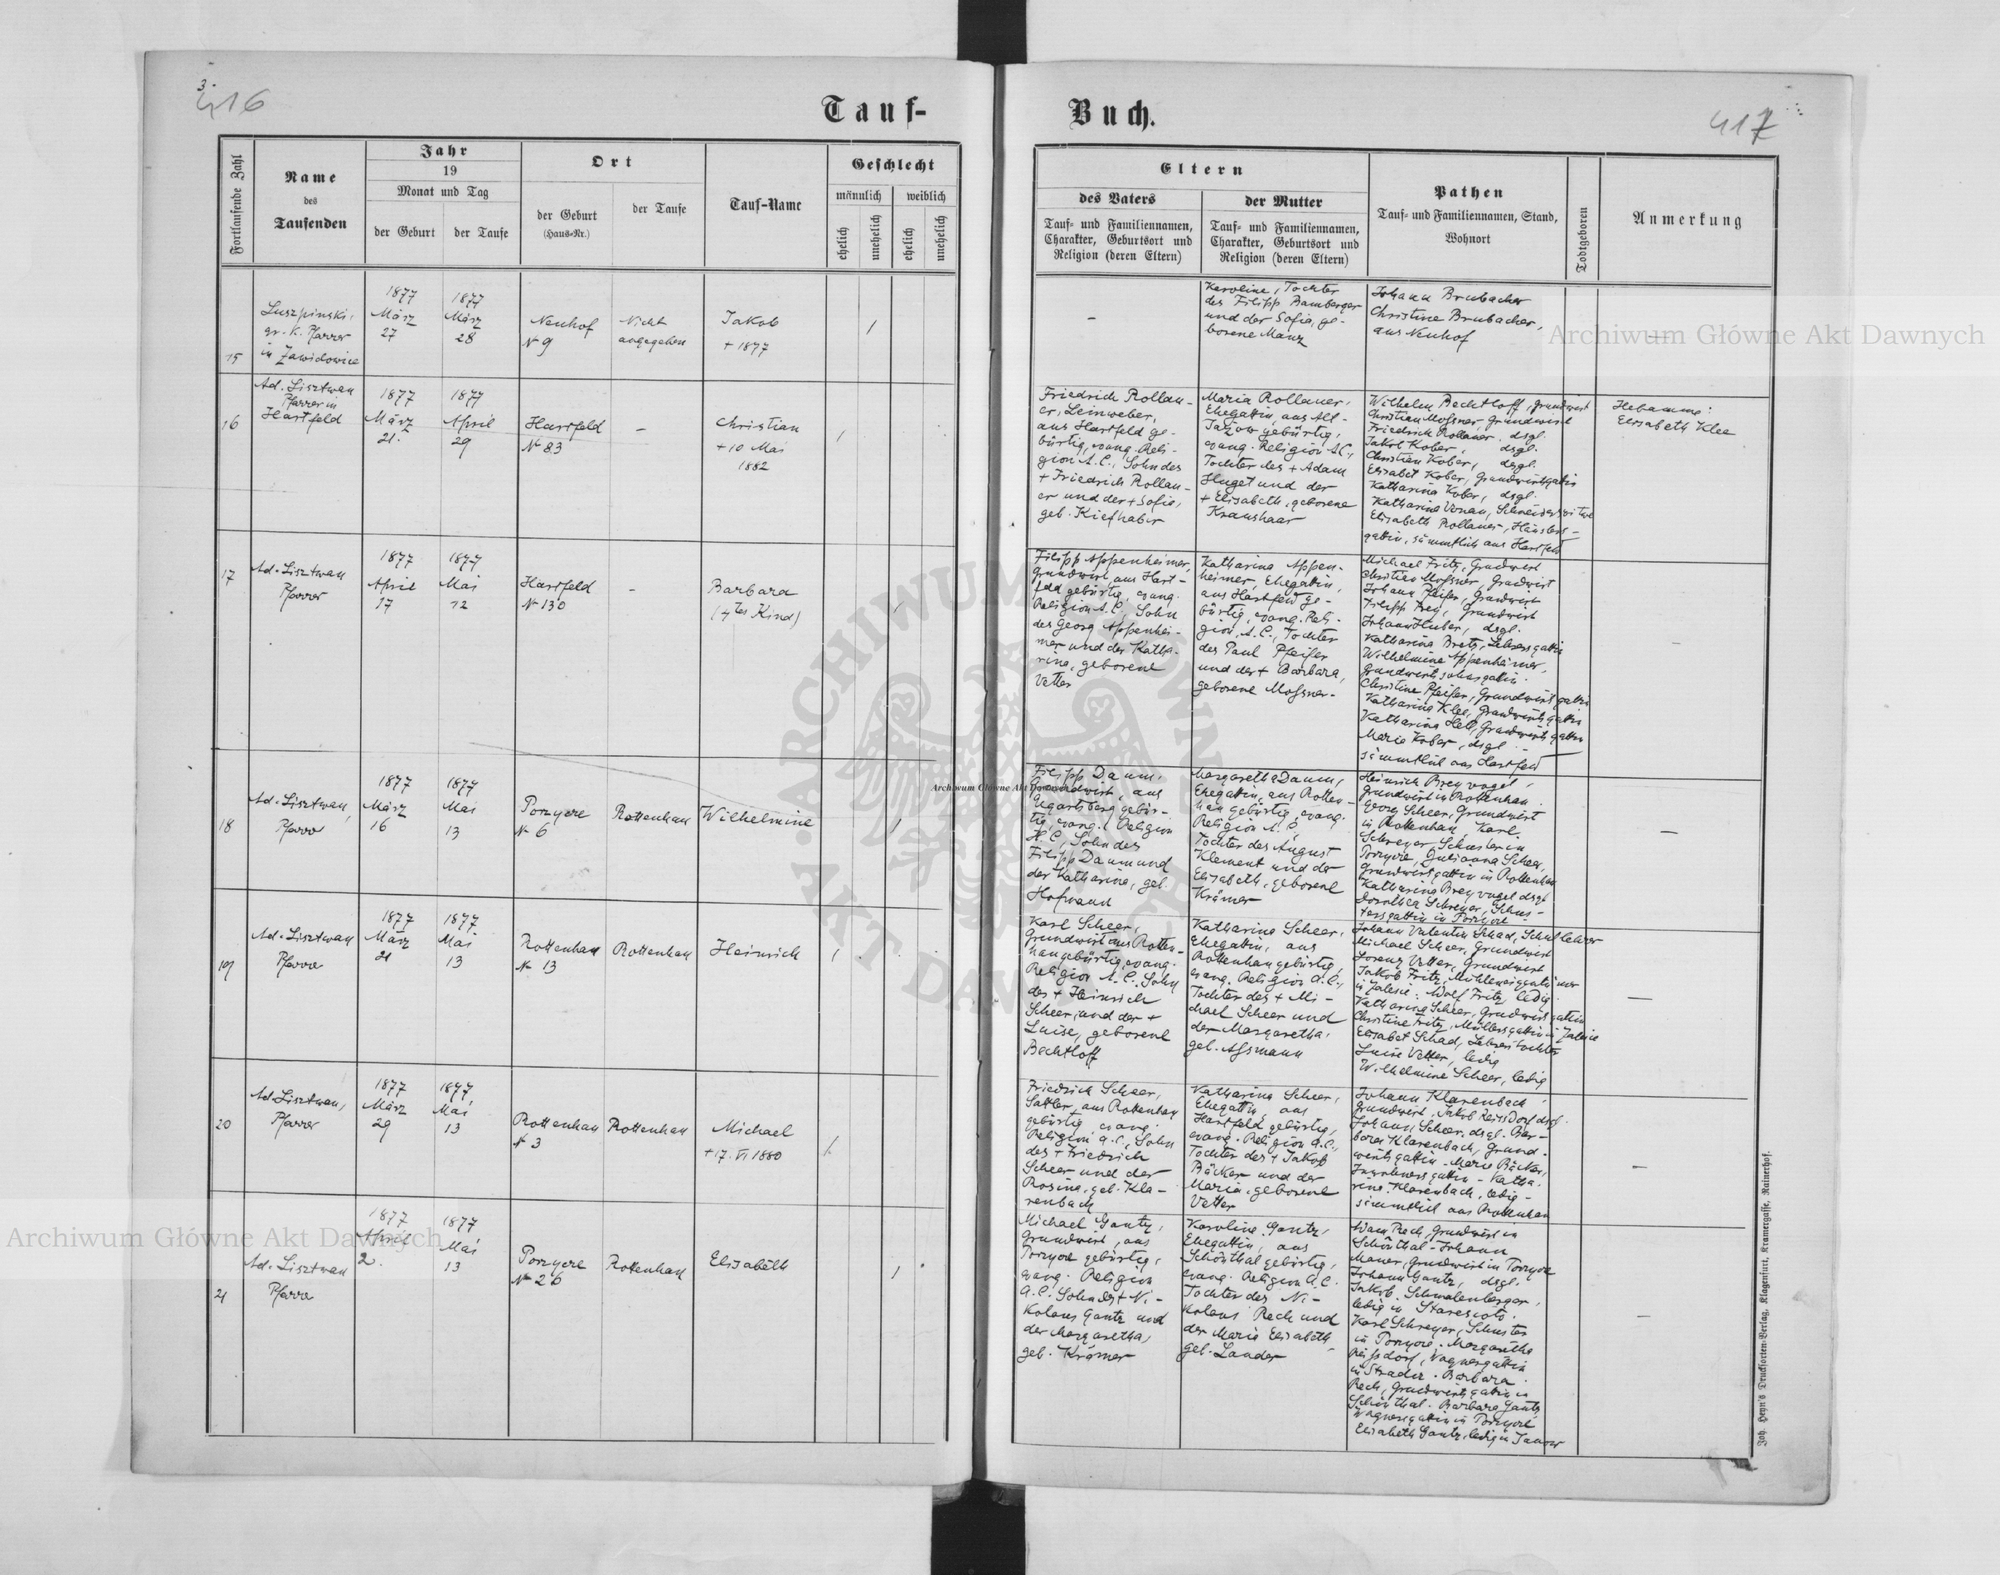 3.
416
Tauf-
Buch.
417
Fortlaufende Zahl
Name
des
Taufenden
Jahr
19
Monat und Tag
der Geburt
der Taufe
Ort
der Geburt
(Haus-Nr.)
der Taufe
Tauf-Name
Geschlecht
männlich
weiblich
ehelich
unehelich
ehelich
unehelich
Eltern
des Vaters
Tauf- und Familiennamen,
Charakter, Geburtsort und
Religion (deren Eltern)
der Mutter
Tauf- und Familiennamen,
Charakter, Geburtsort und
Religion (deren Eltern)
Pathen
Tauf- und Familiennamen, Stand,
Wohnort
Todtgeboren
Anmerkung
15
Luszpinski,
gr. k. Pfarrer
in Zawidowice
1877
März
27
1877
März
28
Neuhof
№ 9
Nicht
angegeben
Jakob
+ 1877
/
–
Karoline, Tochter
des Filipp Bamberger
und der Sofia, ge-
borene Manz
Johann Brubacher
Christine Brubacher,
aus Neuhof
—
16
Ad. Lisztwan
Pfarrer in
Hartfeld
1877
März
21.
1877
April
29
Hartfeld
№ 83
–
Christian
+ 10 Mai
1882
/
Friedrich Rollau-
er, Leinweber,
aus Hartfeld ge-
bürtig, evang. Reli-
gion A.C., Sohn des
+ Friedrich Rollau-
er und der + Sofie,
geb. Kiefhaber
Maria Rollauer,
Ehegattin, aus Alt-
Jażow gebürtig,
evang. Religion A.C.,
Tochter des + Adam
Huget und der
+ Elisabeth, geborene
Kraushaar
Wilhelm Bechtloff, Grundwirt
Christian Mossner, Grundwirt
Friedrich Rollauer, dsgl.
Jakob Kober, dsgl.
Christian Kober, dsgl.
Elisabet Kober, Grundwirtsgattin
Katharina Kober, dsgl.
Katharina Vonau, Schneiderswitwe
Elisabeth Rollauer, Häuslers-
gattin, sämmtlich aus Hartfeld
Hebamme:
Elisabeth Klee
17
Ad. Lisztwan
Pfarrer
1877
April
17
1877
Mai
12
Hartfeld
№ 130
–
Barbara
(4tes Kind)
/
Filipp Appenheimer,
Grundwirt aus Hart-
feld gebürtig, evang.
Religion A.C., Sohn
des Georg Appenhei-
mer und der Katha-
rina, geborene
Vetter
Katharina Appen-
heimer, Ehegattin,
aus Hartfeld ge-
bürtig, evang. Reli-
gion A.C., Tochter
des Paul Pfeifer
und der + Barbara,
geborene Mossner.
Michael Fritz, Grundwirt
Christian Mossner, Grundwirt
Johann Pfeifer, Grundwirt
Filipp Frey, Grundwirt
Johann Huber, dsgl.
Katharina Bretz, Lehrersgattin
Wilhelmine Appenheimer,
Grundwirtssohnsgattin.
Christine Pfeifer, Grundwirtsgattin
Katharina Klee, Grundwirtsgattin
Katharina Hell, Grundwirtsgattin
Maria Kober, dsgl.
sämmtlich aus Hartfeld
–
18
Ad. Lisztwan,
Pfarrer
1877
März
16
1877
Mai
13
Porzyce
№ 6
Rottenhan
Wilhelmine
/
Filipp Daum,
Grundwirt, aus
Ugartsberg gebür-
tig, evang. Religion
H.C., Sohn des
Filipp Daum und
der Katharina, geb.
Margaretha Daum,
Ehegattin, aus Rotten-
han gebürtig, evang.
Religion A.C.,
Tochter des August
Klement und der
Elisabeth, geborene
Krämer
Heinrich Breyvogel,
Grundwirt in Rottenhan.
Georg Scheer, Grundwirt
in Rottenhan, Karl
Schreyer, Schuster in
Porzyce, Julianna Scheer,
Grundwirtsgattin in Rottenhan
Katharina Breyvogel dsgl.
Dorothea Schreyer, Schus-
tersgattin in Porzyce
—
19
Ad. Lisztwan
Pfarrer
1877
März
21
1877
Mai
13
Rottenhan
№ 13
Rottenhan
Heinrich
/
Karl Scheer,
Grundwirt aus Rotten-
han gebürtig, evang.
Religion A.C., Sohn
des + Heinrich
Scheer, und der +
Luise, geborene
Bechtloff
Katharina Scheer,
Ehegattin, aus
Rottenhan gebürtig,
evang. Religion A.C.,
Tochter des + Mi-
chael Scheer und
der Margaretha,
geb. Assmann
Johann Valentin Schad, Schullehrer
Michael Scheer, Grundwirt
Lorenz Vetter, Grundwirt
Jakob Fritz, Mühleneigentümer
in Zalesie. Adolf Fritz, ledig.
Katharina Scheer, Grundwirtsgattin
Christine Fritz, Müllersgattin in Zalesie
Elisabet Schad, Lehrerstochter
Luise Vetter, ledig
Wilhelmine Scheer, ledig
—
20
Ad. Lisztwan,
Pfarrer
1877
März
29
1877
Mai
13
Rottenhan
№ 3
Rottenhan
Michael
+ 17. VI 1880
/
Friedrich Scheer,
Sattler, aus Rottenhan
gebürtig, evang.
Religion A.C., Sohn
des + Friedrich
Scheer und der
Rosina, geb. Kla-
renbach
Katharina Scheer,
Ehegattin, aus
Hartfeld gebürtig,
evang. Religion A.C.,
Tochter des + Jakob
Bäcker und der
Maria, geborene
Vetter
Johann Klarenbach,
Grundwirt, Jakob Reissdorf dsgl.
Johann Scheer, dsgl. Bar-
bara Klarenbach, Grund-
wirtsgattin – Marie Bäcker,
Inwohnersgattin – Katha-
rina Klarenbach, ledig –
sämmtlich aus Rottenhan
—
21
Ad. Lisztwan
Pfarrer
1877
April
2.
1877
Mai
13
Porzyce
№ 26
Rottenhan
Elisabeth
/
Michael Gantz,
Grundwirt, aus
Porzyce gebürtig,
evang. Religion
A.C. Sohn des + Ni-
kolaus Gantz und
der Margaretha,
geb. Krämer
Karoline Gantz,
Ehegattin, aus
Schönthal gebürtig,
evang. Religion A.C.
Tochter des Ni-
kolaus Rech und
der Maria Elisabeth,
geb. Lander
Adam Rech, Grundwirt in
Schönthal – Johann
Mauer, Grundwirt in Porzyce
Johann Gantz, dsgl.
Jakob Schmalenberger,
ledig in
Karl Schreyer, Schuster
in Porzyce. Margaretha
Reissdorf, Wagnersgattin
in Stradcz. Barbara
Rech, Grundwirtsgattin in
Schönthal. Barbara Gantz
Wagnersgattin in Porzyce
Elisabeth Gantz, ledig in Janow
—
Joh. Heyn's Drucksorten-Verlag, Klagenfurt, Kramergasse, Rainerhof.
Archiwum Główne Akt Dawnych
Archiwum Główne Akt Dawnych
Archiwum Główne Akt Dawnych
ARCHIWUM GŁÓWNE AKT DAWNYCH